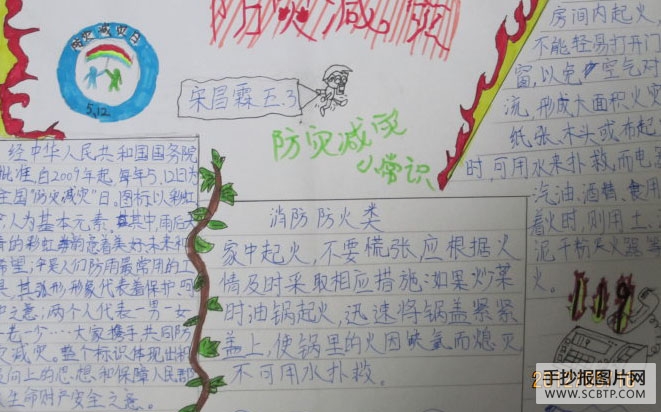 防灾减灾
防灾减灾日
5.12
宋昌霖 五.3
防灾减灾
小常识
经中华人民共和国国务院
批准,自2009年起,每年5.12日为
全国"防灾减灾"日。图标以彩虹
人为基本元素,其中,雨后天
的彩虹
美好未来和
希望,伞是人们防雨最常用的工
具,其弧形形象代表着保护、
之意;两个人代表一男一女、
一老一少……大家携手共同防
灾减灾。整个标识体现出积
向上的思想和保障人民群
生命财产安全之意。
消防防火类
家中起火,不要慌张,应根据火
情及时采取相应措施:如果炒菜
时油锅起火,迅速将锅盖紧紧
盖上,使锅里的火因缺氧而熄灭
不可用水扑救。
房间内起火,
不能轻易打开门
窗,以免空气对
流,形成大面积火灾
纸张、木头或布起
时,可用水来扑救,而电
汽油、酒精、食用
着火时,则用土、
泥、干粉灭火器等
火。
119
手抄报图片网
WWW.SCBTP.COM